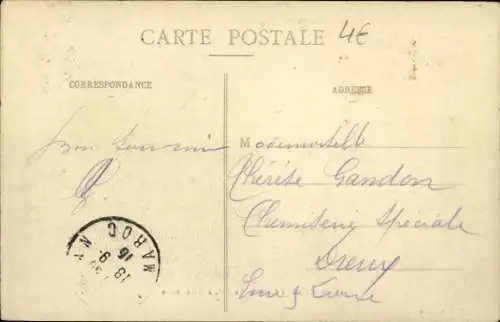 CARTE POSTALE
4€
CORRESPONDANCE
ADRESSE
Bon Souvenir
Mademoiselle
Thérèse Gandon
Chemiserie Spéciale
Dreux
Eure & Loire
MAROC
19 9
16